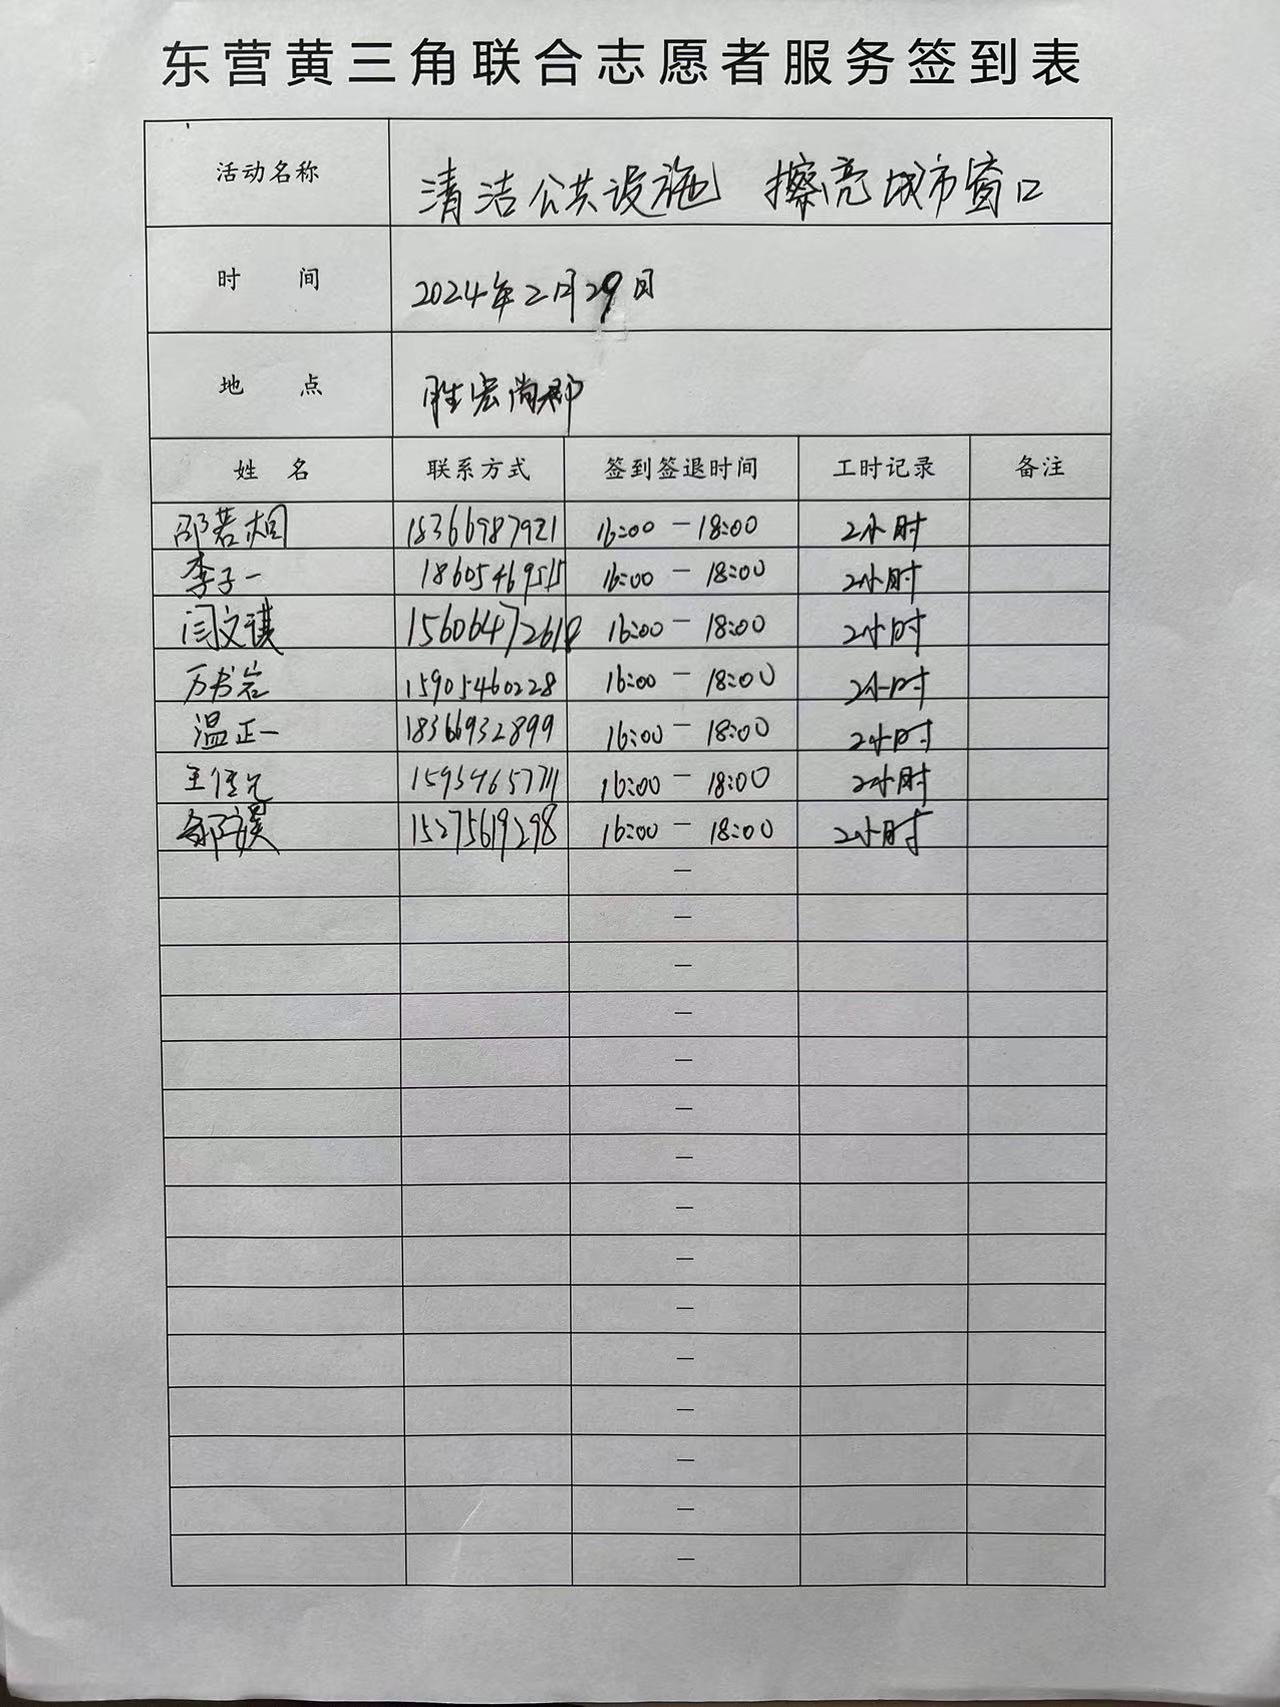 东营黄三角联合志愿者服务签到表
活动名称 清洁公共设施 擦亮城市窗口
时 间 2024年2月29日
地 点 胜宏尚郡
姓 名 联系方式 签到签退时间 工时记录 备注
邵若桐 18366987921 16:00 - 18:00 2小时
李子一 18605469515 16:00 - 18:00 2小时
闫文祺 15606472618 16:00 - 18:00 2小时
万书岩 15905460228 16:00 - 18:00 2小时
温正一 18366932899 16:00 - 18:00 2小时
王佳 16:00 - 18:00 2小时
15275619298 16:00 - 18:00 2小时
—
—
—
—
—
—
—
—
—
—
—
—
—
—
—